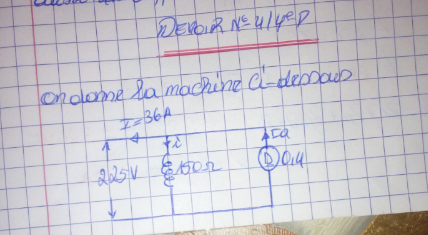 DEVOIR N° 4/4eD
on donne la machine ci-dessous
I=36A
i
Ia
225V
150Ω
D
0,4